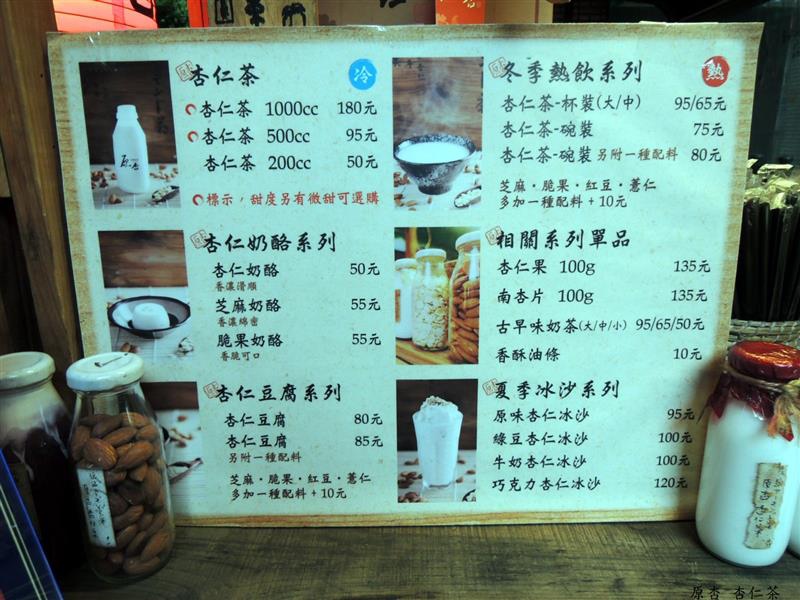 杏仁茶 冷
杏仁茶 1000cc 180元
杏仁茶 500cc 95元
杏仁茶 200cc 50元
標示，甜度另有微甜可選購
杏仁奶酪系列
杏仁奶酪 50元
香濃滑順
芝麻奶酪 55元
香濃綿密
脆果奶酪 55元
香脆可口
杏仁豆腐系列
杏仁豆腐 80元
杏仁豆腐 85元
另附一種配料
芝麻·脆果·紅豆·薏仁
多加一種配料+10元
冬季熱飲系列 熱
杏仁茶-杯裝(大/中) 95/65元
杏仁茶-碗裝 75元
杏仁茶-碗裝 另附一種配料 80元
芝麻·脆果·紅豆·薏仁
多加一種配料+10元
相關系列單品
杏仁果 100g 135元
南杏片 100g 135元
古早味奶茶(大/中/小) 95/65/50元
香酥油條 10元
夏季冰沙系列
原味杏仁冰沙 95元
綠豆杏仁冰沙 100元
牛奶杏仁冰沙 100元
巧克力杏仁冰沙 120元
原杏
原杏 杏仁茶